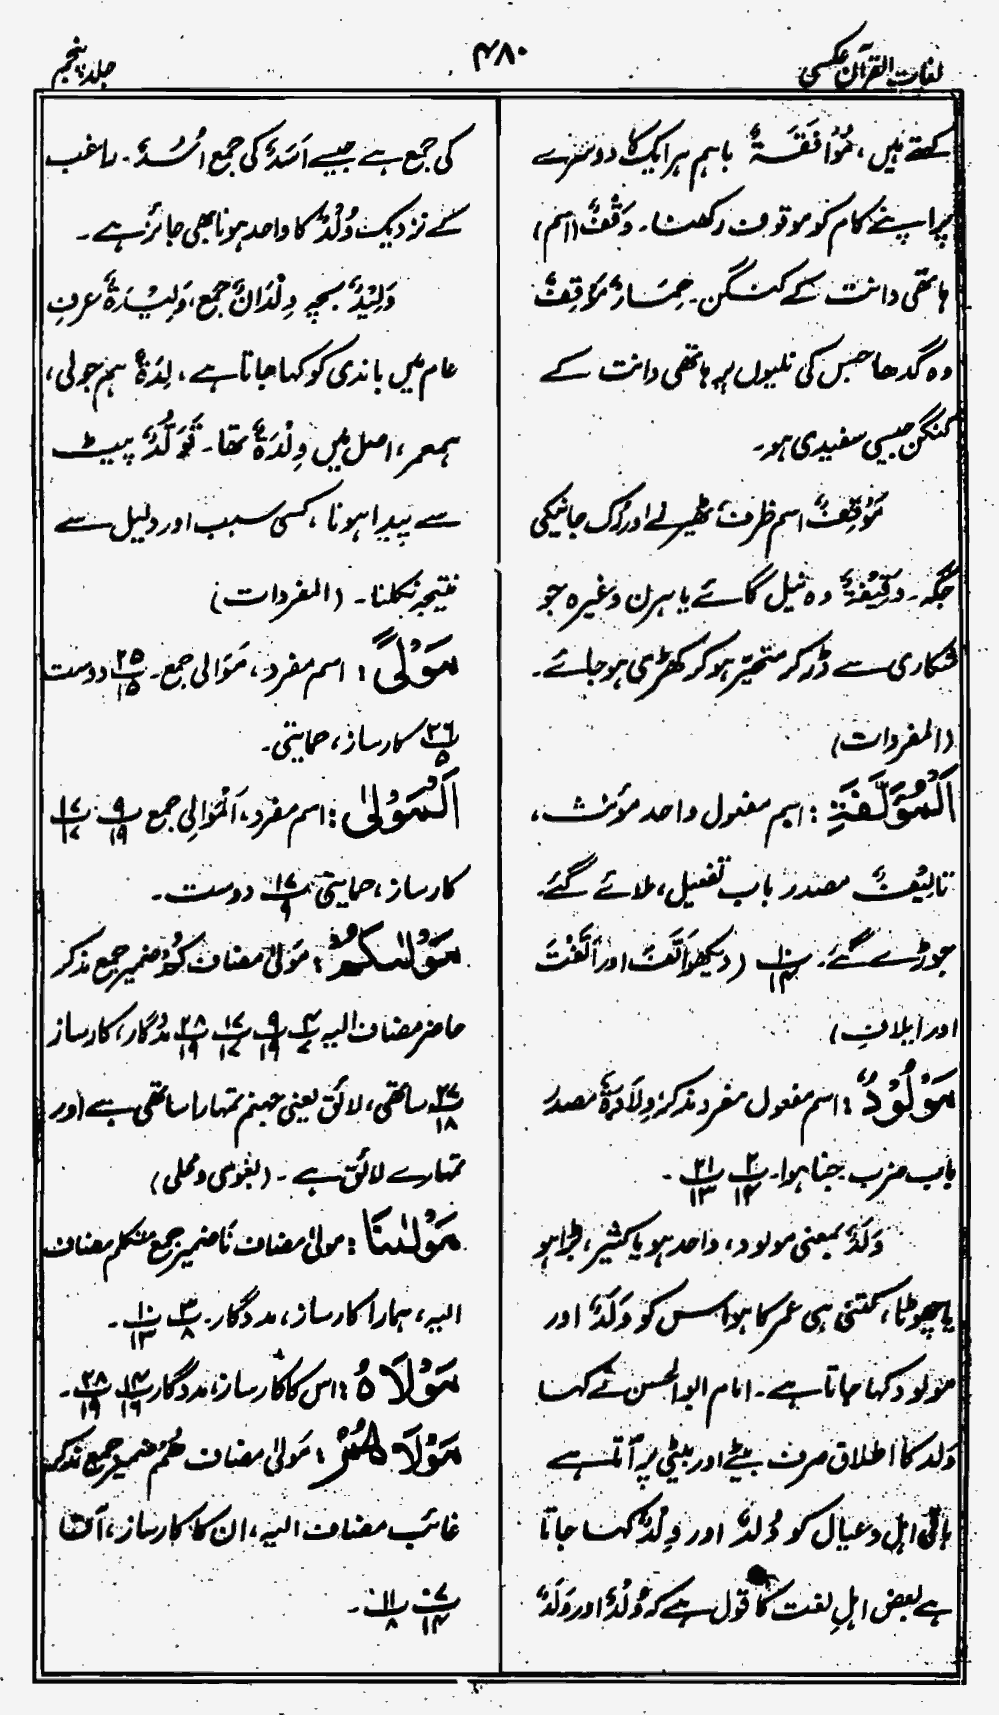 لغات القرآن عکسی
۴۸۰
جلد پنجم
کہتے ہیں، مُوَافَقَۃٌ باہم ہر ایک کا دوسرے
پر اپنے کام کو موقوف رکھنا۔ وَقْفٌ (اسم)
ہاتھی دانت کے کنگن۔ حِمَارٌ مُوَقِفٌ
وہ گدھا جس کی نلیوں پر ہاتھی دانت کے
کنگن جیسی سفیدی ہو۔
مَوْقِفٌ اسم ظرف، ٹھیرنے اور رُک جانیکی
جگہ۔ وَقِیْفَۃٌ وہ نیل گائے یا ہرن وغیرہ جو
شکاری سے ڈر کر متحیّر ہو کر کھڑی ہو جائے۔
(المفردات)
اَلْمُؤَلَّفَۃِ : اسم مفعول واحد مؤنث،
تالِیْفٌ مصدر باب تفعیل، ملائے گئے
جوڑے گئے۔ پ۱۰/۱۴ (دیکھو اَلَّفَ اور اَلَّفْتَ
اور ایلافِ)
مَوْلُوْدٌ : اسم مفعول مفرد مذکر وِلَادَۃٌ مصدر
باب ضرب جنا ہوا۔ پ۲/۱۴ پ۲۱/۱۳ ۔
وَلَدٌ بمعنی مولود، واحد ہو یا کثیر، بڑا ہو
یا چھوٹا، کتنی ہی عمر کا ہو اس کو وَلَدٌ اور
مولود کہا جاتا ہے۔ امام ابو الحسن نے کہا
وَلد کا اطلاق صرف بیٹے اور بیٹی پر آتا ہے
باقی اہل و عیال کو وُلدٌ اور وِلْدٌ کہا جاتا
ہے بعض اہلِ لغت کا قول ہے کہ وُلْدٌ اور وَلَدٌ
کی جمع ہے جیسے اَسَدٌ کی جمع اُسُدٌ۔ راغب
کے نزدیک وُلْدٌ کا واحد ہونا بھی جائز ہے۔
وَلِیْدٌ بچہ وِلْدَانٌ جمع، وَلِیْدَۃٌ عرفِ
عام میں باندی کو کہا جاتا ہے، لِدَۃٌ ہم جولی،
ہمعمر، اصل میں وِلْدَۃٌ تھا۔ تَوَلُّدٌ پیٹ
سے پیدا ہونا، کسی سبب اور دلیل سے
نتیجہ نکلنا۔ (المفردات)
مَوْلًی : اسم مفرد، مَوَالی جمع۔ پ۲۵/۱۵ دوست
پ۲۶/۵ کارساز، حمایتی۔
اَلْمَوْلٰی : اسم مفرد، اَلْمَوَالِی جمع پ۹/۱۹ پ۱۷/۱۷
کارساز، حمایتی پ۱۷/۹ دوست۔
مَوْلٰىکُمْ : مَوْلٰی مضاف کُمْ ضمیر جمع مذکر
حاضر مضاف الیہ پ۴/۷ پ۹/۱۹ پ۱۷/۱۷ پ۲۸/۱۹ مددگار، کارساز
پ۲۷/۱۸ ساتھی، لائق یعنی جہنم تمہارا ساتھی ہے اور
تمہارے لائق ہے۔ (بغوی و محلی)
مَوْلٰىنَا : مولیٰ مضاف نَا ضمیر جمع متکلم مضاف
الیہ، ہمارا کارساز، مددگار۔ پ۳/۸ پ۱۰/۱۳ ۔
مَوْلَاہُ : اس کا کارساز، مددگار پ۱۴/۱۶ پ۲۸/۱۹ ۔
مَوْلَاھُمْ : مَوْلٰی مضاف ھُمْ ضمیر جمع مذکر
غائب مضاف الیہ، ان کا کارساز، آقا
پ۷/۱۴ پ۱۱/۸ ۔